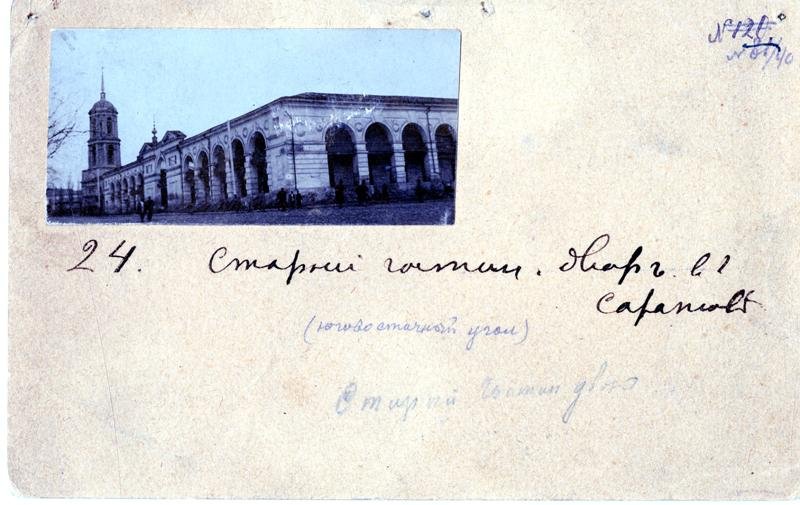 № 120.
24. Старый гостин. дворъ в г
Саратовѣ
(юговосточный угол)
Старый Гостин двор